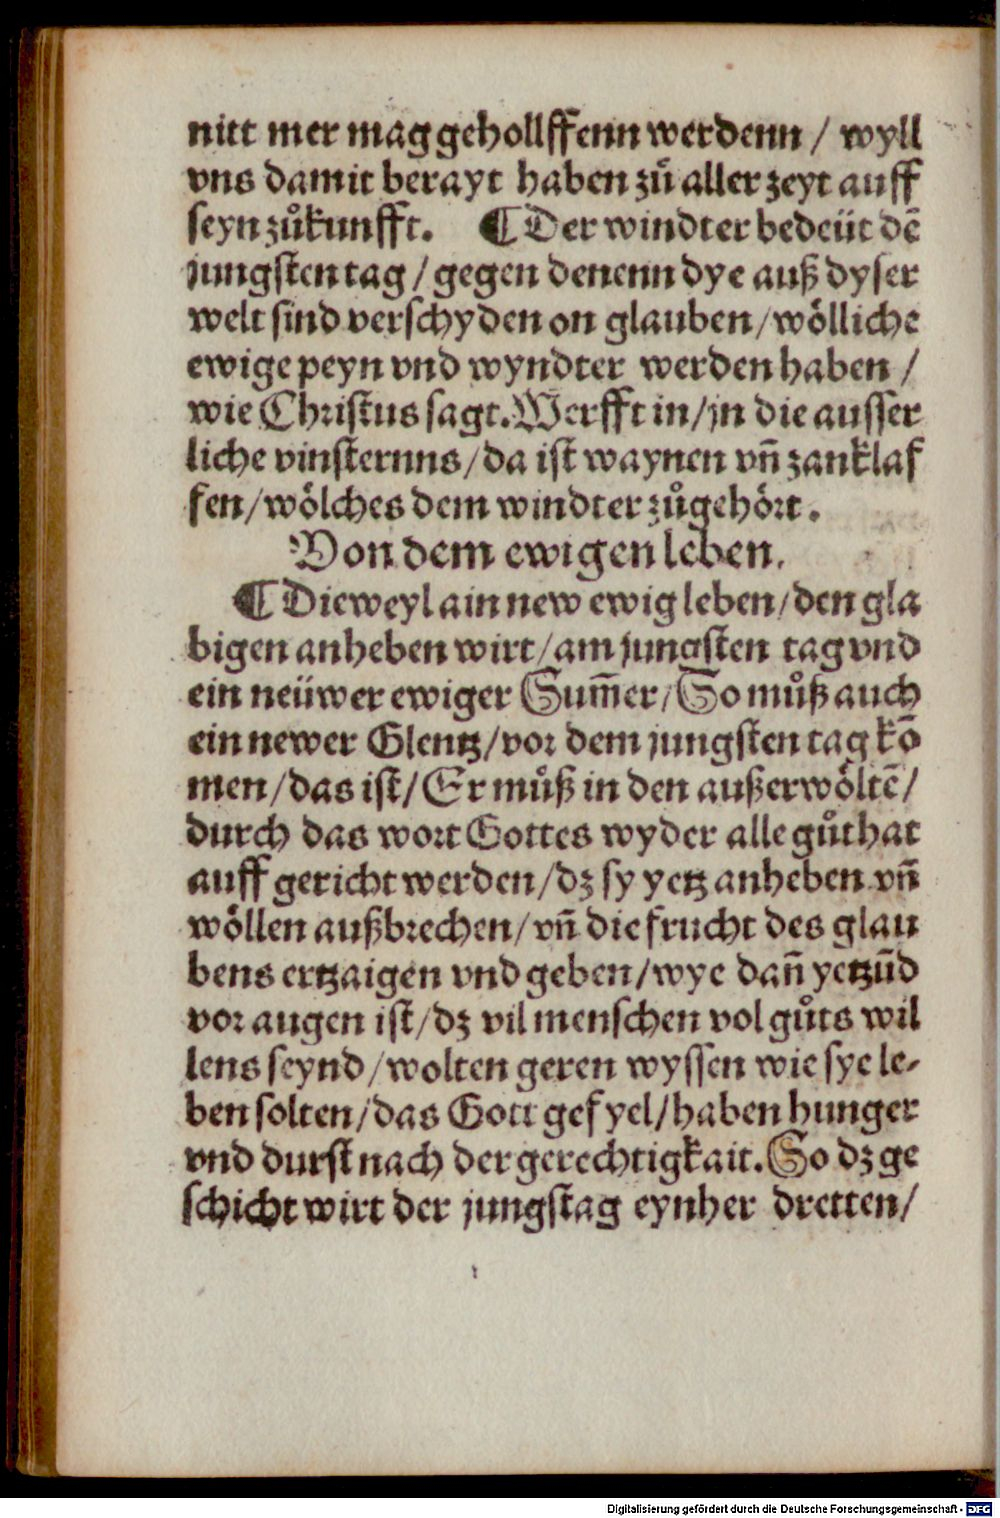 nitt mer mag gehollffenn werdenn / wyll
vns damit berayt haben zů aller zeyt auff
seyn zůkunfft. ¶ Der windter bedeüt dē
jungsten tag / gegen denenn dye auß dyser
welt sind verschyden on glauben / wölliche
ewige peyn vnd wyndter werden haben /
wie Christus sagt. Werfft in / jn die ausser
liche vinsternns / da ist waynen vñ zanklaf
fen / wölches dem windter zůgehört.
Von dem ewigen leben.
¶ Dieweyl ain new ewig leben / den gla
bigen anheben wirt / am jungsten tag vnd
ein neüwer ewiger Sum̄er / So můß auch
ein newer Glentz / vor dem jungsten tag kō
men / das ist / Er můß in den außerwöltē /
durch das wort Gottes wyder alle gůthat
auff gericht werden / dz sy yetz anheben vñ
wöllen außbrechen / vñ die frucht des glau
bens ertzaigen vnd geben / wye dañ yetzūd
vor augen ist / dz vil menschen vol gůts wil
lens seynd / wolten geren wyssen wie sye le-
ben solten / das Gott gefyel / haben hunger
vnd durst nach der gerechtigkait. So dz ge
schicht wirt der jungstag eynher dretten /
Digitalisierung gefördert durch die Deutsche Forschungsgemeinschaft - DFG